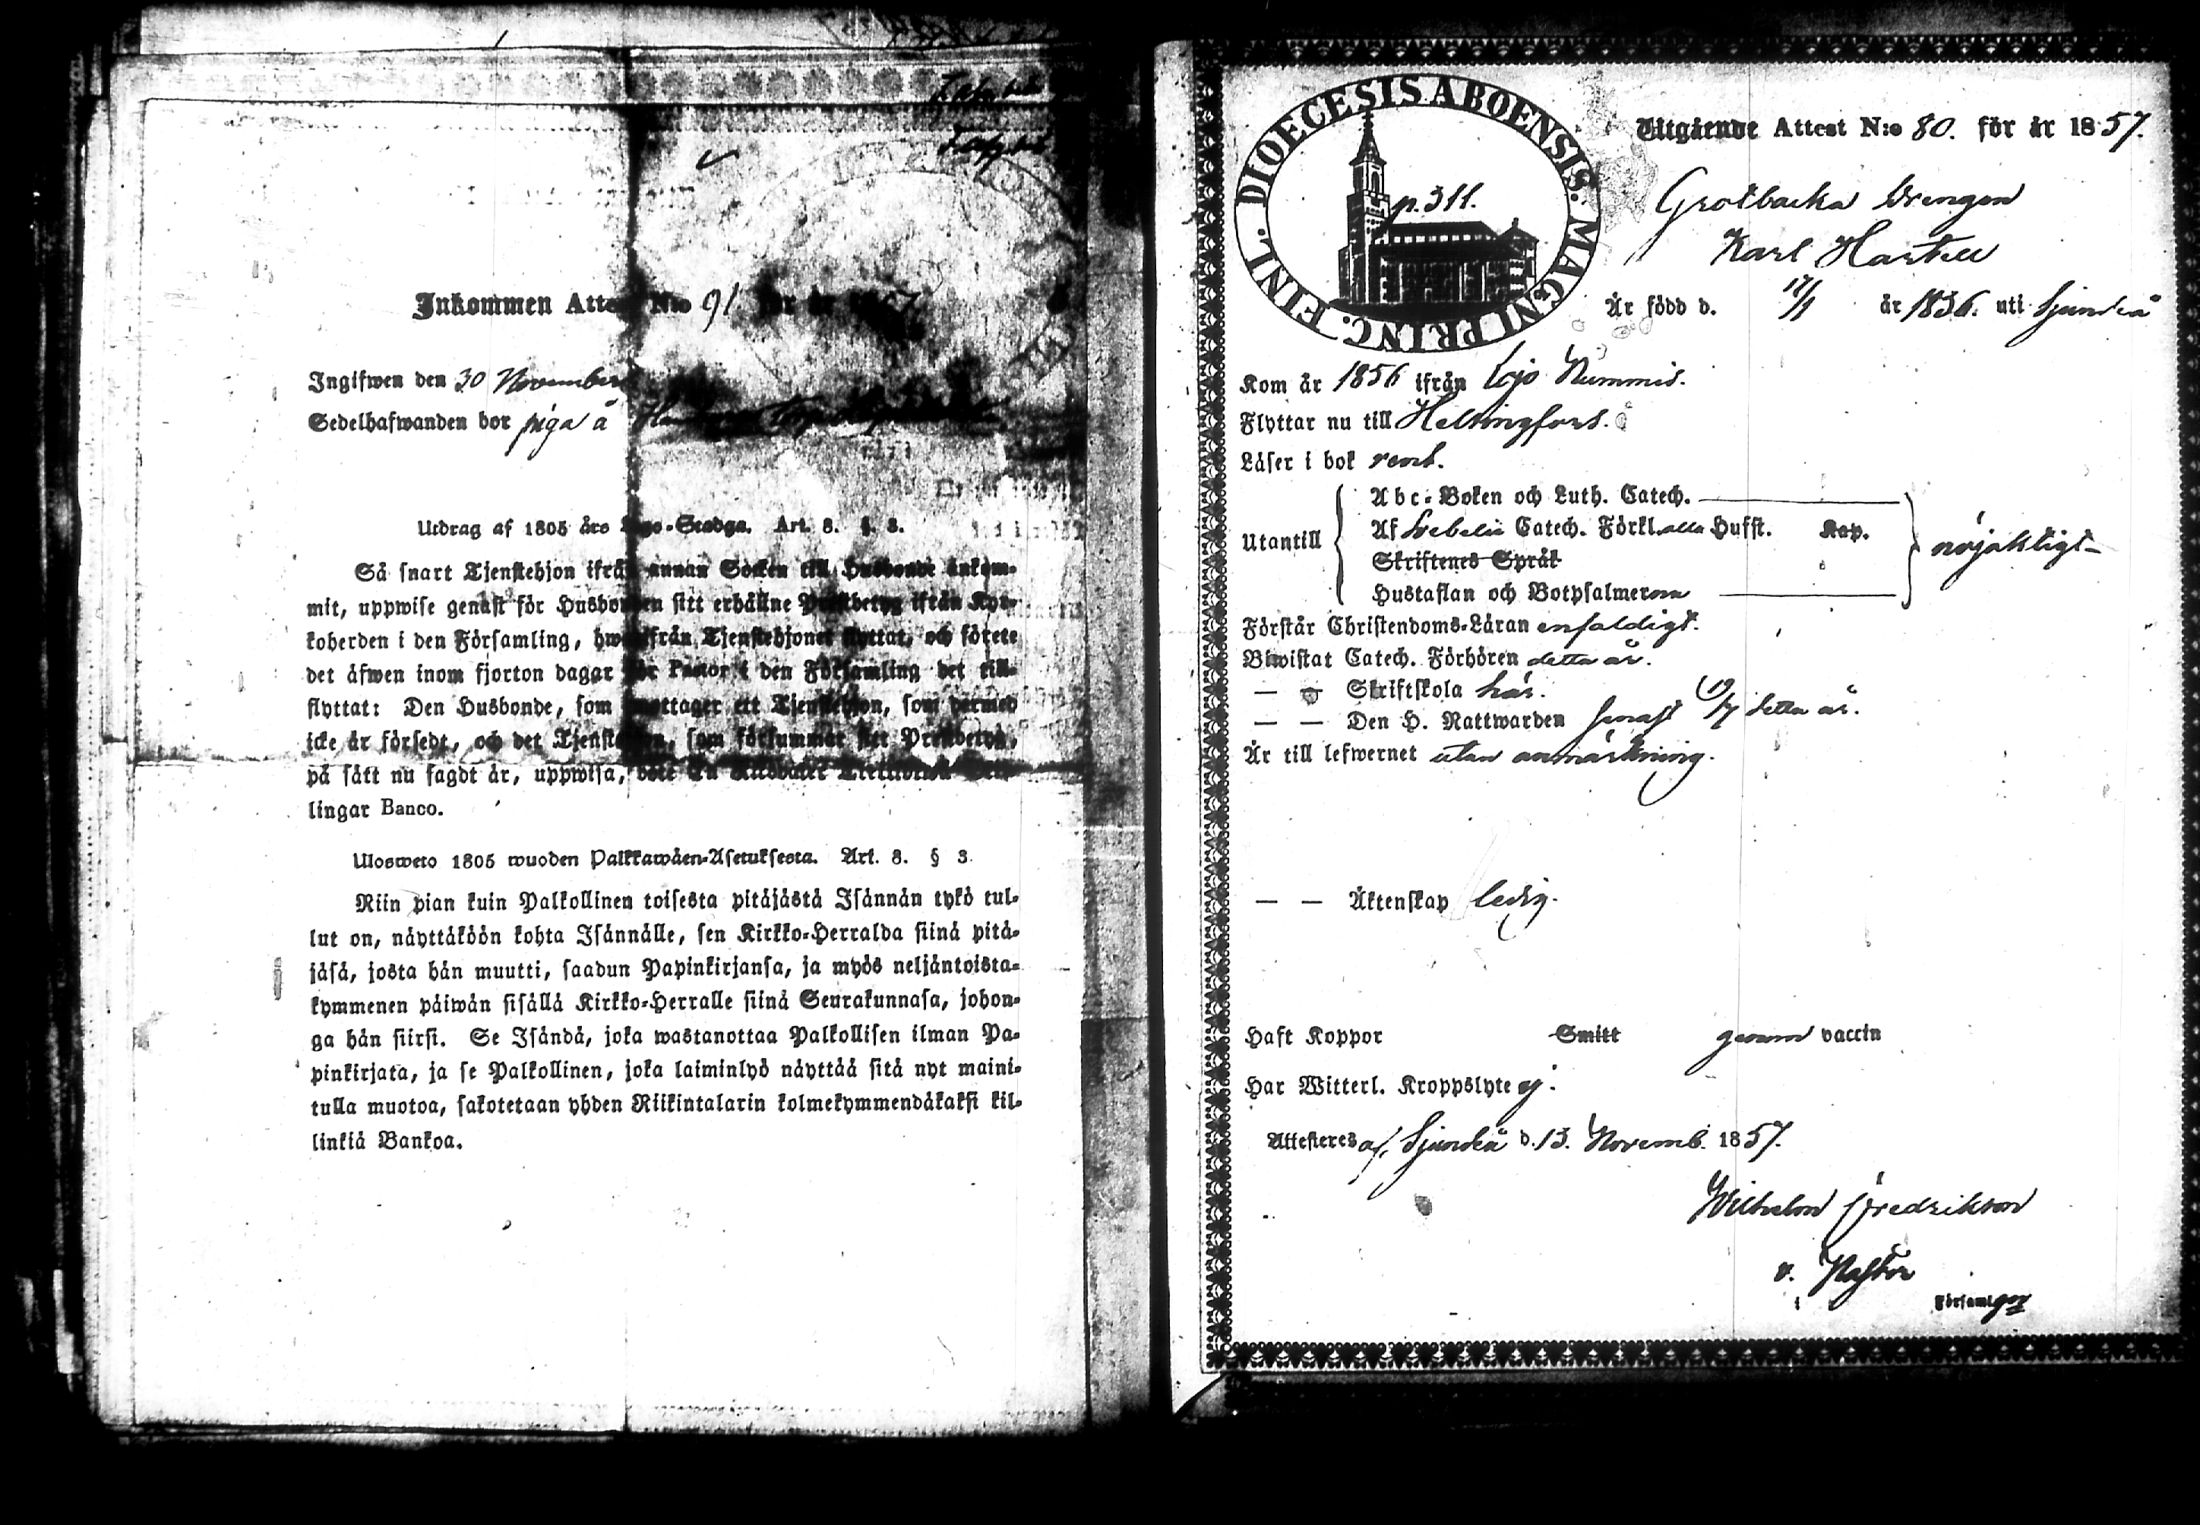 Inkommen Attest N:o 91 för år 1857
Ingifwen den 30 November
Sedelhafwanden bor piga å
Utdrag af 1805 års Lego-Stadga. Art. 8. §. 3.
Så snart Tjenstehjon ifrån annan Socken till Husbonde ankom-
mit, uppwise genast för Husbonden sitt erhållne Prestbetyg ifrån Kyr-
koherden i den Församling, hwarifrån Tjenstehjonet flyttat, och förete
det äfwen inom fjorton dagar för Pastor i den Församling det till-
flyttat: Den Husbonde, som emottager ett Tjenstehjon, som dermed
icke är försedt, och det Tjenstehjon, som försummar sitt Prestbetyg,
på sätt nu sagdt är, uppwisa, böte En Riksdaler Trettiotwå Skil-
lingar Banco.
Ulosweto 1805 wuoden Palkkawäen-Asetuksesta. Art. 8. § 3.
Niin pian kuin Palkollinen toisesta pitäjästä Isännän tykö tul-
lut on, näyttäköön kohta Isännälle, sen Kirkko-Herralda siinä pitä-
jäsä, josta hän muutti, saadun Papinkirjansa, ja myös neljäntoista-
kymmenen päiwän sisällä Kirkko-Herralle siinä Seurakunnasa, johon-
ga hän siirsi. Se Isändä, joka wastanottaa Palkollisen ilman Pa-
pinkirjata, ja se Palkollinen, joka laiminlyö näyttää sitä nyt maini-
tulla muotoa, sakotetaan yhden Riikintalarin kolmekymmendäkaksi kil-
linkiä Bankoa.
DIOECESIS ABOENSIS. MAGNI PRINC. FINL.
p. 311.
Utgående Attest N:o 80. för år 1857.
Grotbacka Drengen
Karl Hartell
Är född d. 17/1 år 1836. uti Sjundeå
Kom år 1856 ifrån Lojo Nummis.
Flyttar nu till Helsingfors.
Läser i bok rent.
Utantill
Abc-Boken och Luth. Catech.
Af Svebelii Catech. Förkl. alla Hufst. Kap.
Skriftenes Språk
Hustaflan och Botpsalmerna
nöjaktigt
Förstår Christendoms-Läran enfaldigt.
Biwistat Catech. Förhören detta år.
— — Skriftskola här.
— — Den H. Nattwarden senast 19/7 detta år.
Är till lefwernet utan anmärkning.
— — Äktenskap ledig.
Haft Koppor Smitt genom vaccin
Har Witterl. Kroppslyte ej.
Attesteres af, Sjundeå d. 13. Novemb. 1857.
Wilhelm Fredrikson
v. Pastor
i Församl